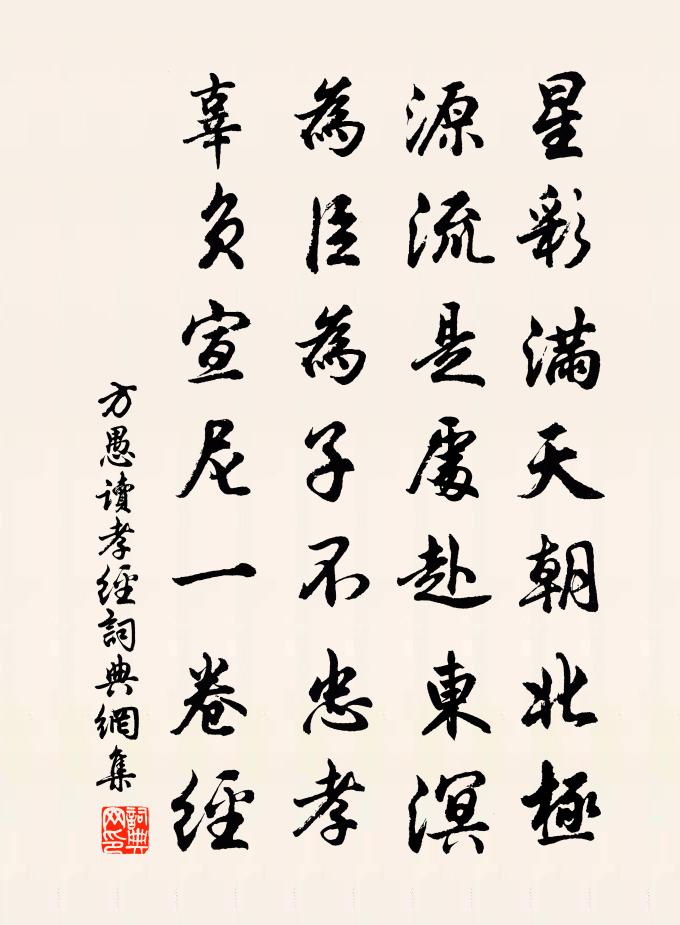 星彩滿天朝北極
源流是處赴東溟
為臣為子不忠孝
辜負宣尼一卷經
方愚讀孝經詞典網集
詞典
网印